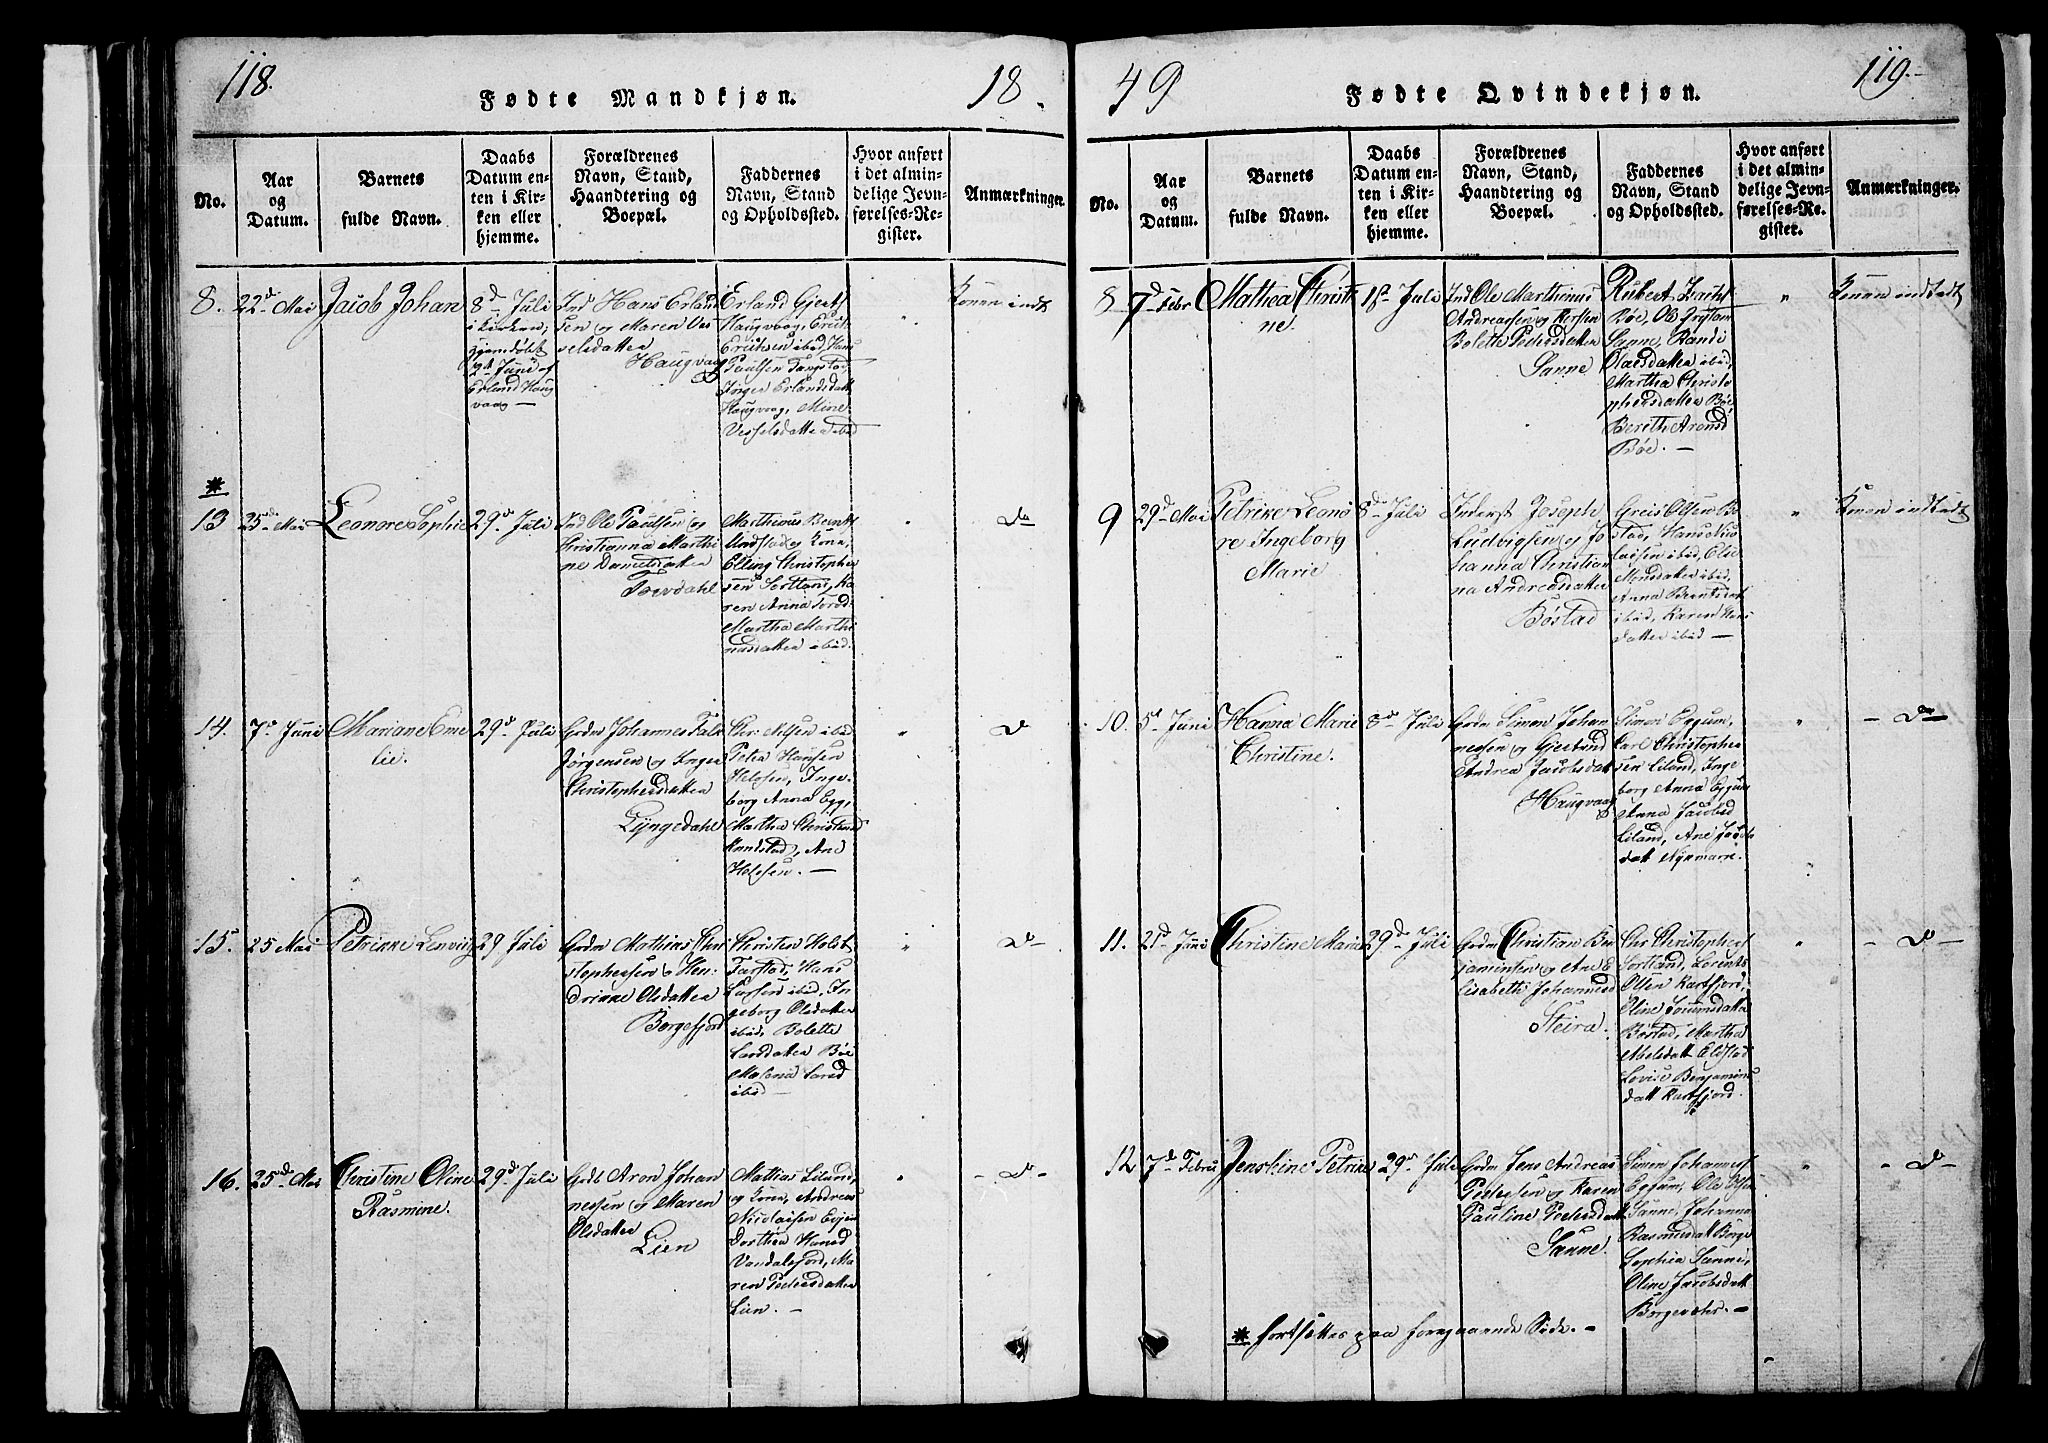 118.
Fødte Mandkjøn.
18.
No.
Aar
og
Datum.
Barnets
fulde Navn.
Daabs
Datum en-
ten i Kir-
ken eller
hjemme.
Forældrenes
Navn, Stand,
Haandtering og
Boepæl.
Faddernes
Navn, Stand
og Opholdssted.
Hvor anført
i det almin-
delige Jevn-
førelses-Re-
gister.
Anmærkninger.
8.
22d Mai
Jacob Johan
8d Juli
i Kirken,
hjemdøbt
2d Juni af
Erland Haug
vaag —
Ind Hans Erland
sen og Maren Ves
selsdatter
Haugvaag
Erland Gjerts
Haugvaag, Erik
Eriksen ibid, Hans
Paulsen Tangstad
Inger Erlandsdatt
Haugvaag, Mine
Vesselsdatter ibid
"
Konen indt
*
13
25de Mai
Leonore Sophie
29d Juli
Ind Ole Paulsen og
Christianna Marthi
ne Danielsdatter
Torvdahl
Marthinus Bernt
Undstad og Kona,
Elling Christopher
sen Sortland, Ka
ren Anna
Martha Marthi
nusdatter ibid.
"
Do
14.
7d Juni
Mariane Eme
lie.
29d Juli
Gdm Johannes Falk
Jørgensen og Inger
Christophersdatter
Lyngedahl
Chr. Nilsen ibid
Petra Hansen
Helosen, Inge
borg Anna Egg,
Martha Christensd
Randstad, Ane
Helosen. —
"
D
15.
25 Mai
Petrikke Lenvig
29 Juli
Gdm Mathias Chri
stophersen og Hen-
drikke Olsdatter
Borgefjord
Christen Holst
Farstad, Hans
Larsen ibid, In
geborg Olsdatter
ibid, Bolette
Larsdatter Bøe
Malena Larsd
ibid —
"
D —
16.
25de Mai
Christine Oline
Rasmine.
29d Juli
Gdb Aron Johan
nessen og Maren
Olsdatter
Lien
Mathias Liland,
og Kona, Andreas
Nicolaisen Evjen
Dorthea Hansd
Vandalsfjord, Ma
ren Pedersdatter
Lien. —
"
- D -
49
Fødte Qvindekjøn.
119.
No.
Aar
og
Datum.
Barnets
fulde Navn.
Daabs
Datum en-
ten i Kir-
ken eller
hjemme.
Forældrenes
Navn, Stand,
Haandtering og
Boepæl.
Faddernes
Navn, Stand
og Opholdssted.
Hvor anført
i det almin-
delige Jevn-
førelses-Re-
gister.
Anmærkninger.
8
7d Febr
Mathea Christi
ne.
1ste Juli
Ind Ole Marthinus
Andreassen og Kersten
Bolette Pedersdatter
Sanne
Rubert
Bøe, Ole
Sanne, Randi
Olaisdatter ibid,
Martha Christo
phersdatter Bøe
Berith Aronsd
Bøe. —
"
Konen indtadt
9
29d Mai
Petrikke Leono
re Ingeborg
Marie
8d Juli
Inderst Joseph
Ludvigsen og Jo
hanna Christian
na Andreasdatter
Bøstad
Greis Olsen Bø
stad, Hans Nico
laisen ibid, Elie
Monsdatter ibid,
Anna Berntsdat
ibid, Karen Hans
datter ibid —
"
Konen indtadt
10.
5d Juni
Hanna Marie
Christine.
8d Juli
Gdm Simon Johan
nessen og Gjertrud
Andrea Jacobsdat
Haugvaag
Simon Eggum,
Carl Christopher
sen Liland, Inge
borg Anna Eggum
Anna Jacobsd
Liland, Ane Jacobs
datt Nykmark.
"
- Do
11.
2d Juni
Christine Marie
29d Juli
Gdm Christian Ben
jaminsen og Ane E
lisabeth Johannesd
Steira.
Chr Christophers
Sortland, Lorents
Olsen Kartfjord,
Oline Joramsdatter
Bøstad, Martha
Nielsdatt Eldstad
Lovise Benjamins
datt Kartfjord.
"
- D -
12
7d Febru
Jenskine Petrine
29d Juli
Gdm Jens Andreas
Pedersen og Karen
Pauline Pedersdatt
Sanne.
Simon Johannes
Eggum, Ole Olsen
Sanne, Johanna
Rasmusdatt Borge
Sophia Sanne,
Oline Jacobsdatt
Borgevær. —
"
- D -
* fortsættes paa foregaaende Side. —